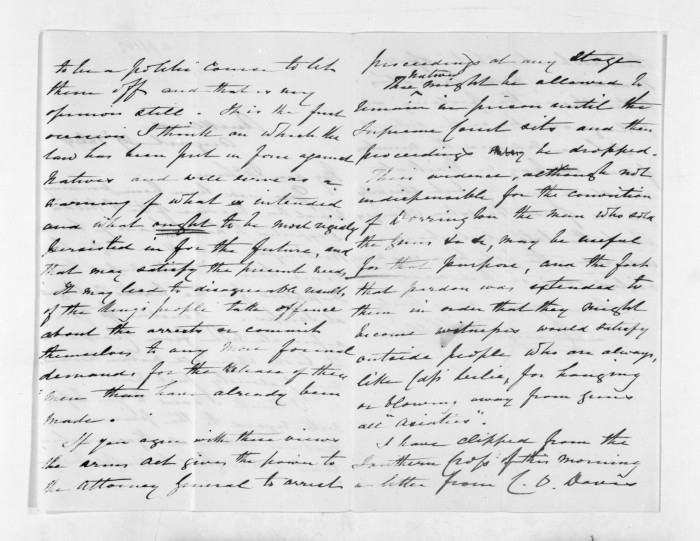 to be a politic course to let
them off and that is my
opinion still. It is the first
occasion I think on which the
law has been put in force against
Natives and will serve as a
warning of what is intended
and what ought to be most rigidly
persisted in for the future, and
that may satisfy the present need.
It may lead to disagreeable results
if the King's people take offence
about the arrests or commit
themselves to any more formal
demands for the release of these
men than have already been
made.
If you agree with these views
the arms Act gives the power to
the Attorney General to arrest
proceedings at any stage
These Natives might be allowed to
remain in prison until the
Supreme Court sits and then
proceedings be dropped.
Their evidence, although not
indispensible for the conviction
of Worrington the man who sold
the guns &c &c, may be useful
for that purpose, and the fact
that pardon was extended to
them in order that they might
become witnesses would satisfy
outside people who are always,
like Capt Leslie, for hanging
or blowing away from guns
all "Asiatics"
I have clipped from the
Southern Cross of this morning
a letter from C. O. Davis